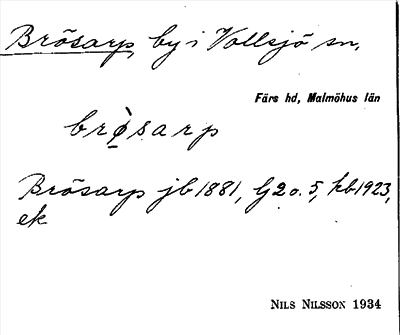 Brösarp, by i Vollsjö sn,
Färs hd, Malmöhus län
brø̀sarp
Brösarp jb 1881, G 2 o. 5, kb 1923,
ek
NILS NILSSON 1934